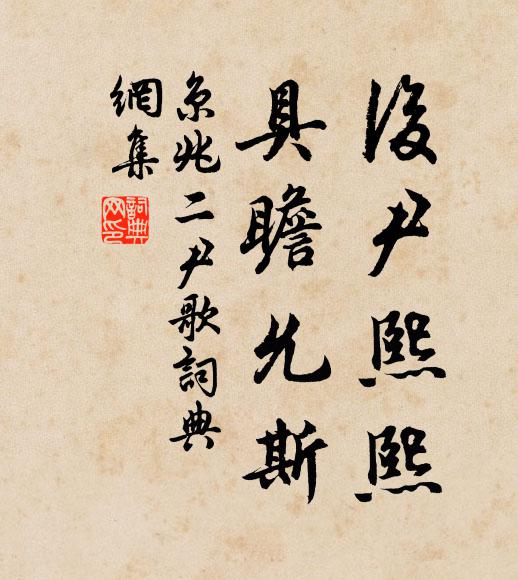 後尹熙熙
具瞻允斯
京兆二尹歌詞典
網集
詞典
网印